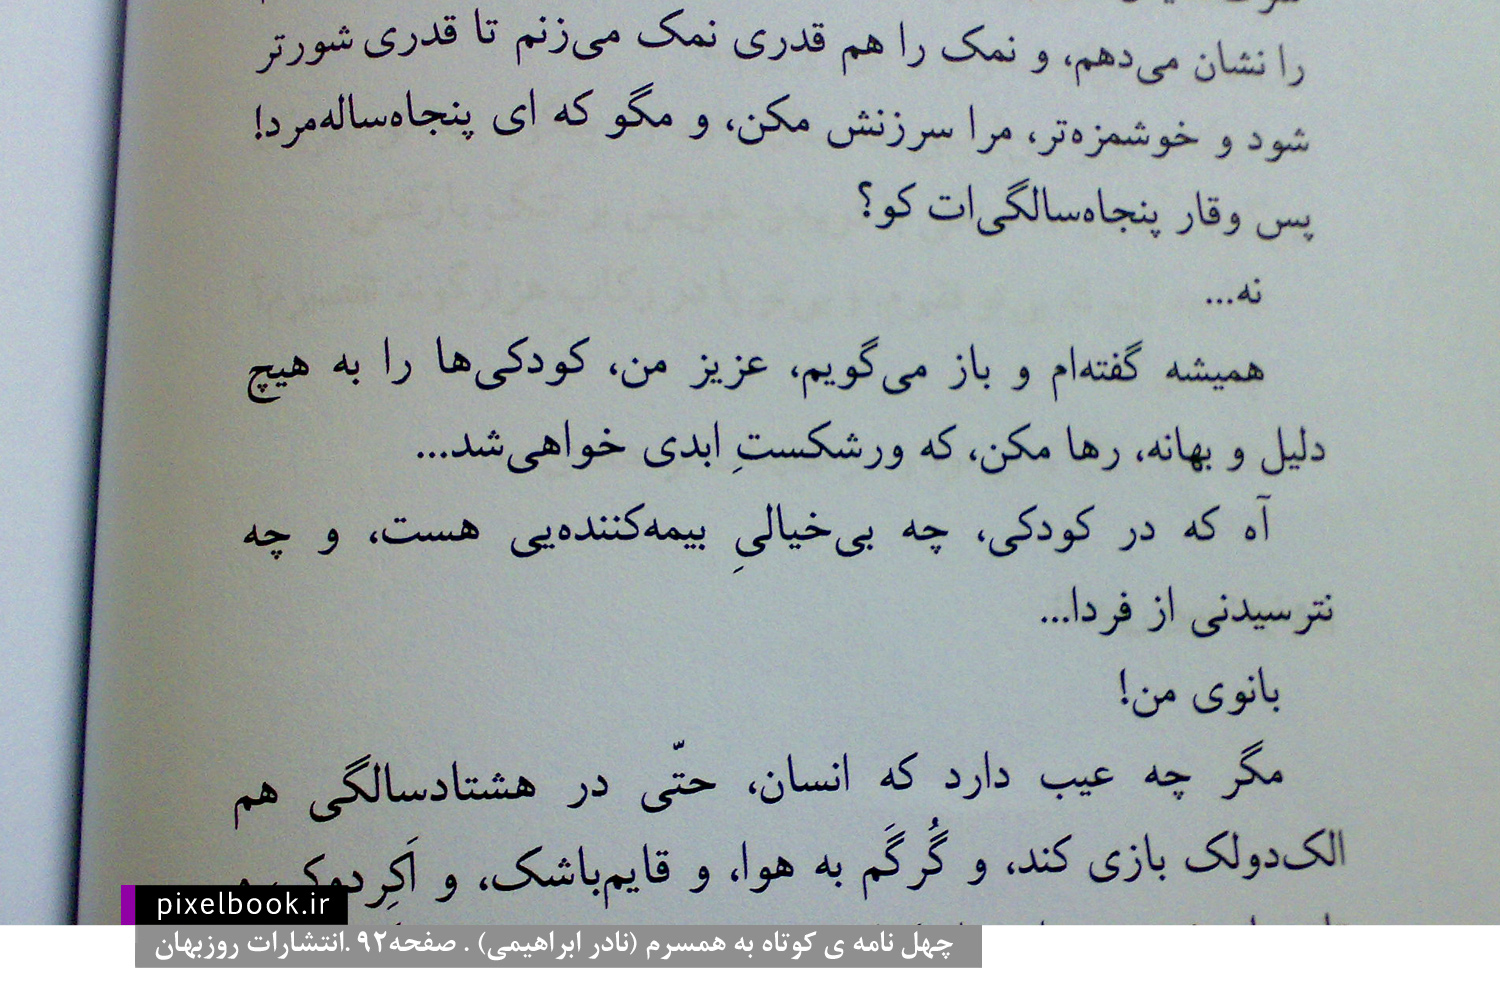 را نشان می‌دهم، و نمک را هم قدری نمک می‌زنم تا قدری شورتر
شود و خوشمزه‌تر، مرا سرزنش مکن، و مگو که ای پنجاه‌ساله‌مرد!
پس وقار پنجاه‌سالگی‌ات کو؟
نه...
همیشه گفته‌ام و باز می‌گویم، عزیز من، کودکی‌ها را به هیچ
دلیل و بهانه، رها مکن، که ورشکستِ ابدی خواهی‌شد...
آه که در کودکی، چه بی‌خیالیِ بیمه‌کننده‌یی هست، و چه
نترسیدنی از فردا...
بانوی من!
مگر چه عیب دارد که انسان، حتّی در هشتادسالگی هم
الک‌دولک بازی کند، و گُرگَم به هوا، و قایم‌باشک، و اَکِردوکر و
pixelbook.ir
چهل نامه ی کوتاه به همسرم (نادر ابراهیمی) . صفحه۹۲ .انتشارات روزبهان